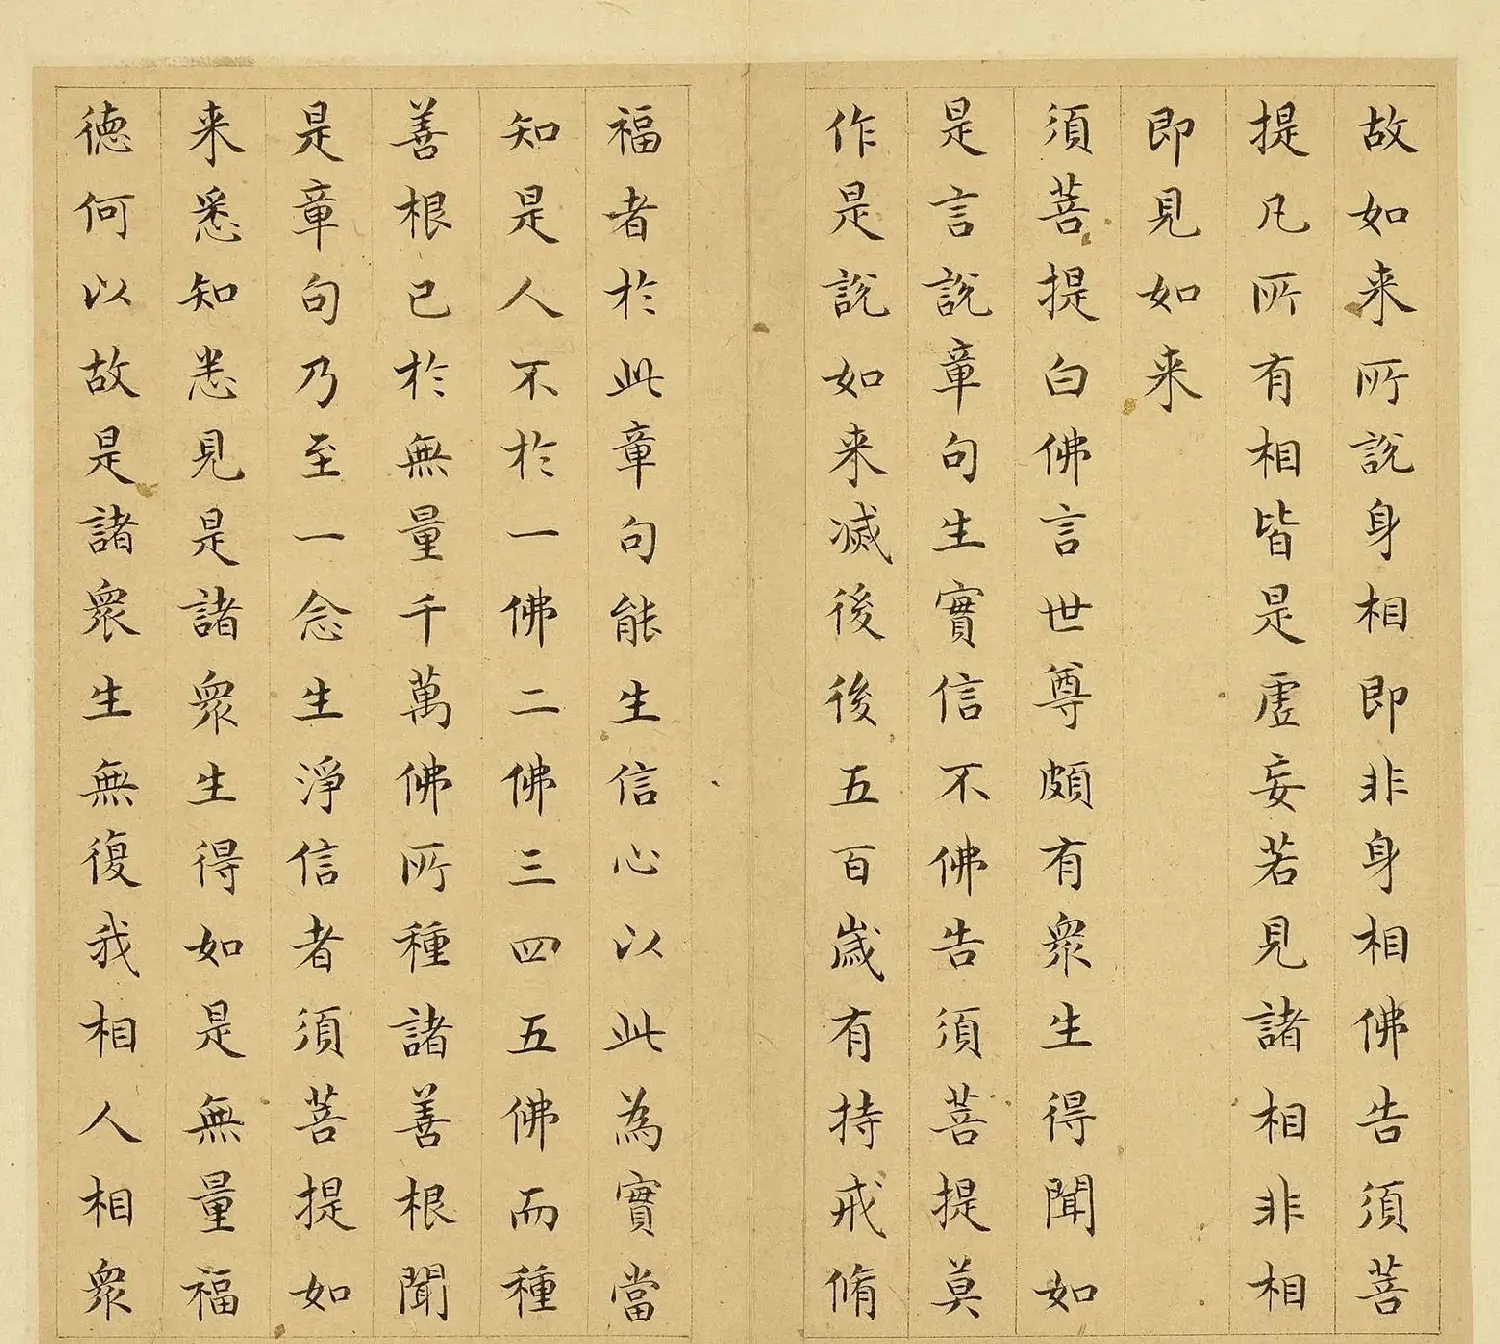 故如来所說身相即非身相佛告須菩
提凡所有相皆是虛妄若見諸相非相
即見如来
須菩提白佛言世尊頗有眾生得聞如
是言說章句生實信不佛告須菩提莫
作是說如来滅後後五百歲有持戒脩
福者於此章句能生信心以此為實當
知是人不於一佛二佛三四五佛而種
善根已於無量千萬佛所種諸善根聞
是章句乃至一念生淨信者須菩提如
来悉知悉見是諸眾生得如是無量福
德何以故是諸眾生無復我相人相眾